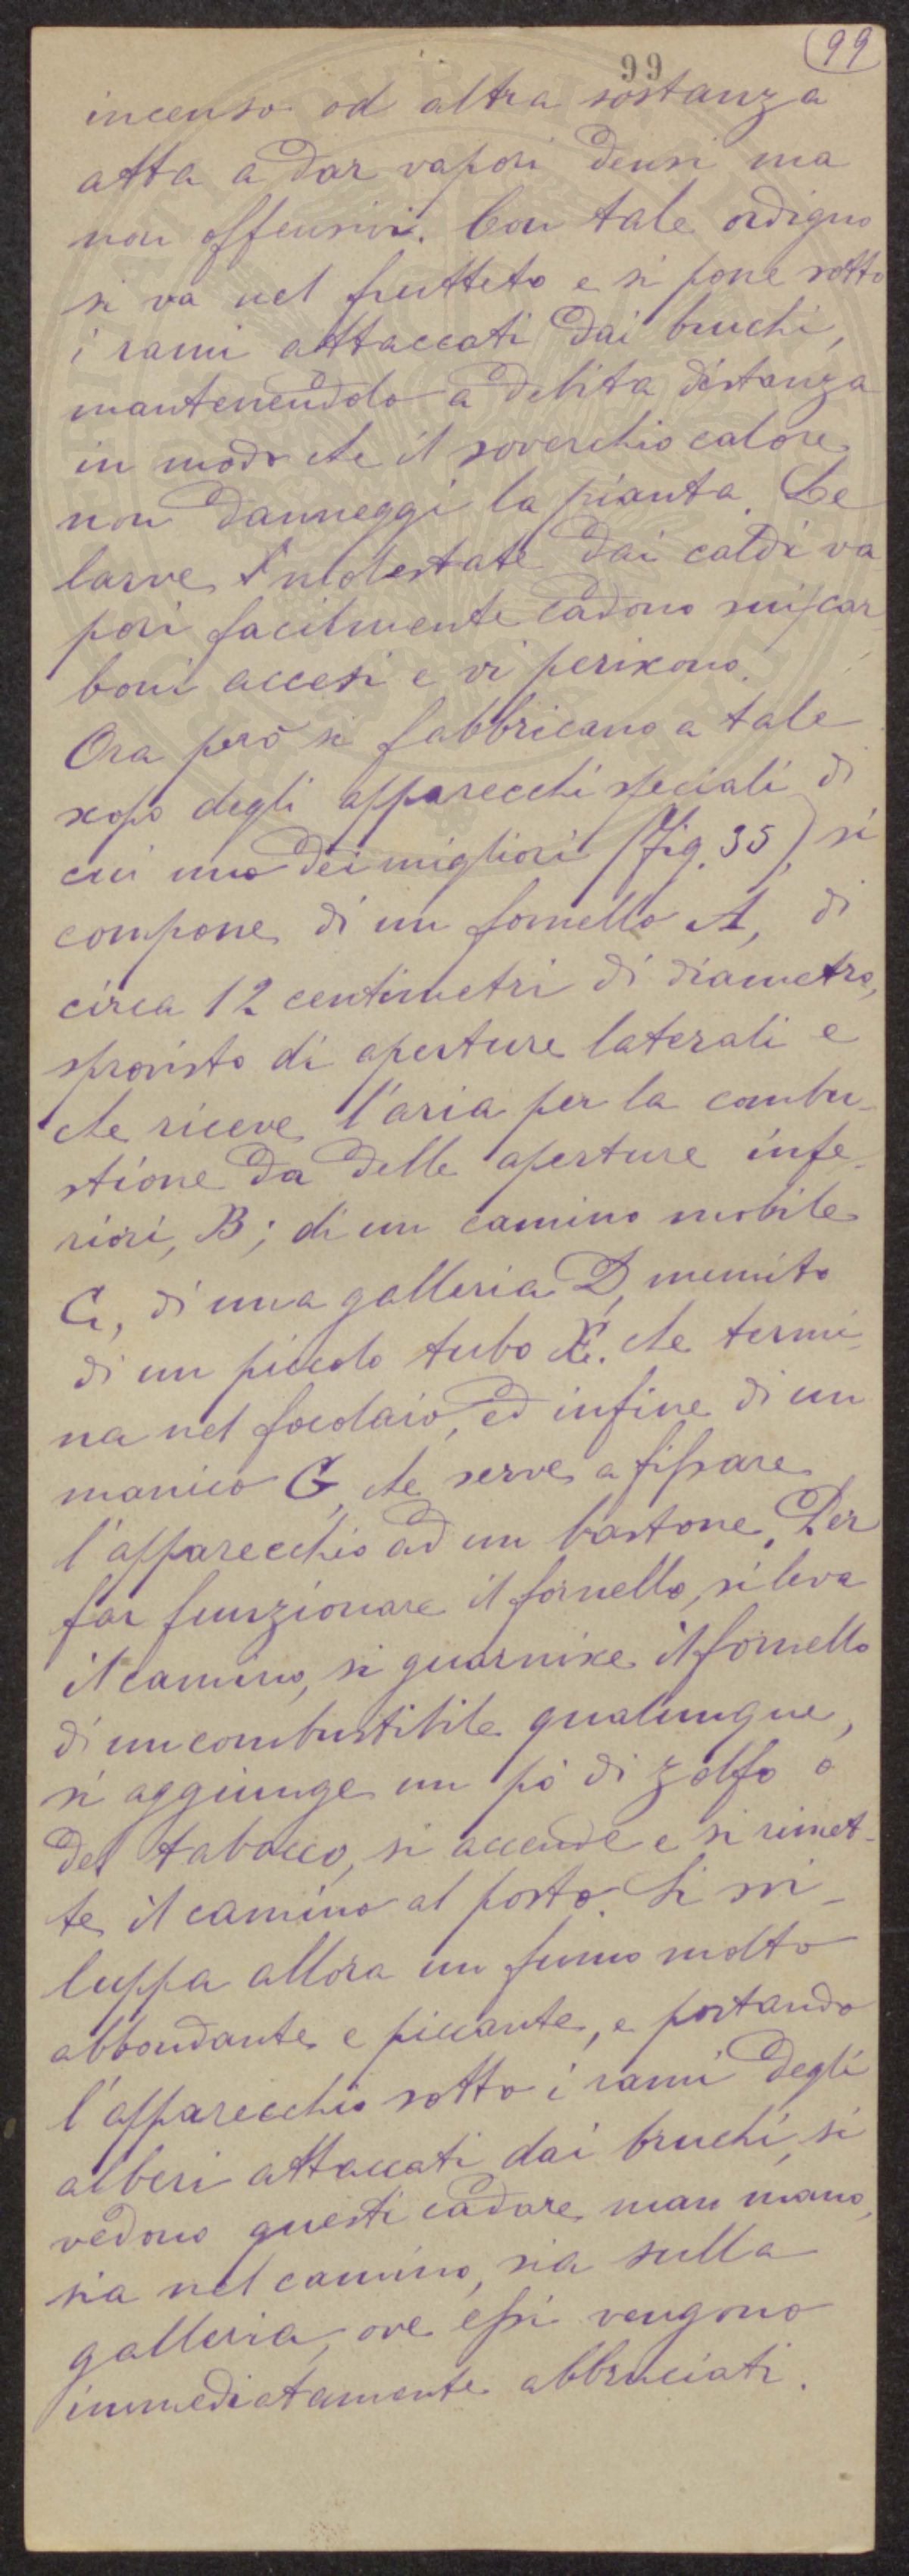 99
99
incenso od altra sostanza
atta a dar vapori densi ma
non offensivi. Con tale ordigno
si va nel frutteto e si pone sotto
i rami attaccati dai bruchi,
mantenendolo a debita distanza
in modo che il soverchio calore
non danneggi la pianta. Le
larve molestate dai caldi va
pori facilmente cadono sui car-
boni accesi e vi periscono.
Ora però si fabbricano a tale
scopo degli apparecchi speciali di
cui uno dei migliori (fig. 35) si
compone di un fornello A, di
circa 12 centimetri di diametro,
sprovisto di aperture laterali e
che riceve l'aria per la combu-
stione da delle aperture infe-
riori, B; di un camino mobile
C, di una galleria D, munito
di un piccolo tubo E. che termi-
na nel focolaio, ed infine di un
manico G, che serve a fissare
l'apparecchio ad un bastone. Per
far funzionare il fornello, si leva
il camino, si guarnisce il fornello
di un combustibile qualunque,
si aggiunge un pò di zolfo o
del tabacco, si accende e si rimet-
te il camino al posto. Si svi-
luppa allora un fumo molto
abbondante e piccante, e portando
l'apparecchio sotto i rami degli
alberi attaccati dai bruchi, si
vedono questi cadare man mano,
sia nel camino, sia sulla
galleria, ove essi vengono
immediatamente abbruciati.